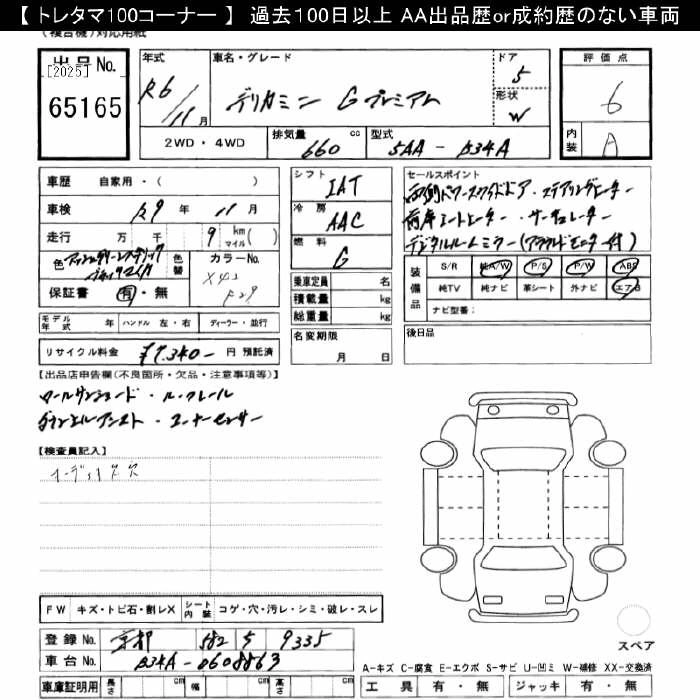 【 トレタマ100コーナー 】 過去100日以上 AA出品歴or成約歴のない車両
(複合機)対応用紙
出品No.
[2025]
65165
年式
R6/11月
車名・グレード
デリカミニ Gプレミアム
ドア
5
形状
W
評価点
6
内装
A
2WD・4WD
排気量
660 cc
型式
5AA - B34A
車歴 自家用・( )
車検 R9 年 11 月
走行 万 千 9 km マイル ( )
色
色替
カラーNo.
X42
保証書 有・無
モデル年式 年 ハンドル 左・右 ディーラー・並行
リサイクル料金 ¥7,340- 円 預託済
シフト
IAT
冷房
AAC
燃料
G
乗車定員 名
積載量 kg
総重量 kg
名変期限
月 日
セールスポイント
両側パワースライドドア・ステアリングヒーター
前席シートヒーター・サーキュレーター
デジタルルームミラー(アラウンドモニター付)
装備品
S/R 純A/W P/S P/W ABS
純TV 純ナビ 革シート 外ナビ エアB
ナビ型番:
後日品
【出品店申告欄(不良箇所・欠品・注意事項等)】
ロールサンシェード・ルーフレール
ダウンヒルアシスト・コーナーセンサー
【検査員記入】
FW キズ・トビ石・割レX シート内装 コゲ・穴・汚レ・シミ・破レ・スレ
登録No. 京都 582 す 9335
車台No. B34A-0608863
車庫証明用 長さ cm 幅 cm 高さ cm
スペア
A-キズ C-腐食 E-エクボ S-サビ U-凹ミ W-補修 XX-交換済
工具 有・無 ジャッキ 有・無